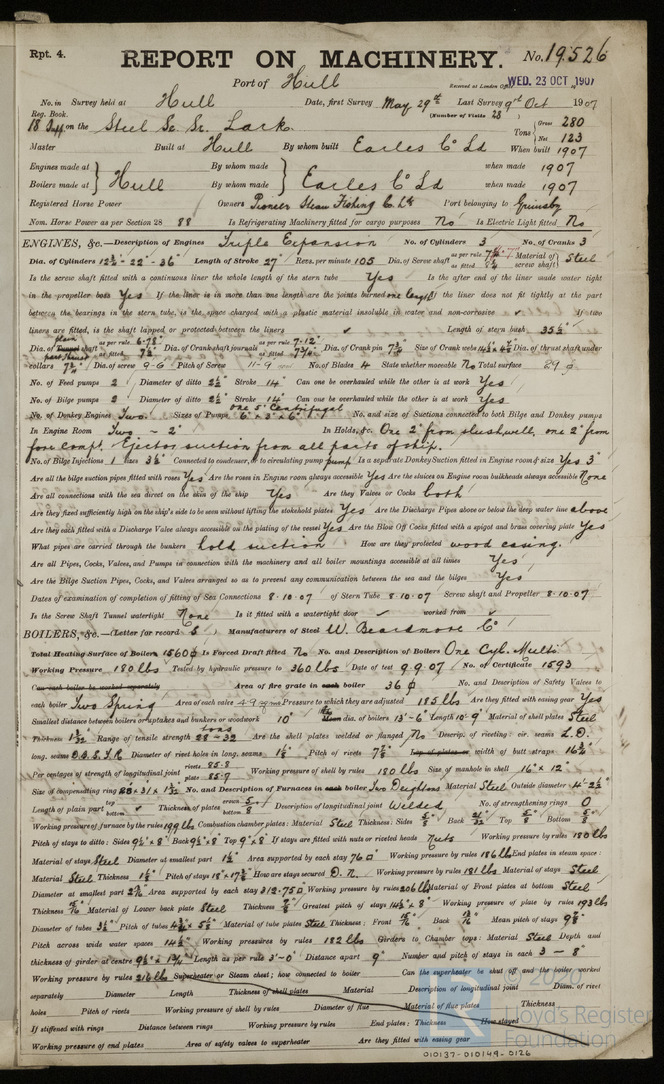 Rpt. 4. REPORT ON MACHINERY. No. 19526
Port of Hull
Received at London Office WED. 23 OCT 1907
No. in Survey held at Hull Date, first Survey May 29th Last Survey 9th Oct 1907
Reg. Book. (Number of Visits 28)
18 on the Steel Sc. Sr. Lark Tons Gross 280 Net 123
Master Built at Hull By whom built Earles Co Ld When built 1907
Engines made at Hull By whom made Earles Co Ld when made 1907
Boilers made at Hull By whom made Earles Co Ld when made 1907
Registered Horse Power Owners Pioneer Steam Fishing Co. Ltd Port belonging to Grimsby
Nom. Horse Power as per Section 28 88 Is Refrigerating Machinery fitted for cargo purposes No Is Electric Light fitted No
ENGINES, &c.—Description of Engines Triple Expansion No. of Cylinders 3 No. of Cranks 3
Dia. of Cylinders 12¾ - 22 - 36" Length of Stroke 27" Revs. per minute 105 Dia. of Screw shaft as per rule as fitted Material of screw shaft Steel
Is the screw shaft fitted with a continuous liner the whole length of the stern tube Yes Is the after end of the liner made water tight
in the propeller boss Yes If the liner is in more than one length are the joints burned one length If the liner does not fit tightly at the part
between the bearings in the stern tube, is the space charged with a plastic material insoluble in water and non-corrosive ✓ If two
liners are fitted, is the shaft lapped or protected between the liners ✓ Length of stern bush 35½"
Dia. of Tunnel shaft as per rule 6.78" as fitted Dia. of Crank shaft journals as per rule 7.12" as fitted Dia. of Crank pin Size of Crank webs Dia. of thrust shaft under
collars Dia. of screw 9-6 Pitch of Screw 11-9 No. of Blades 4 State whether moveable No Total surface 29
No. of Feed pumps 2 Diameter of ditto 2½" Stroke 14" Can one be overhauled while the other is at work Yes
No. of Bilge pumps 2 Diameter of ditto 2½" Stroke 14" Can one be overhauled while the other is at work Yes
No. of Donkey Engines Two Sizes of Pumps one 5" Centrifugal 6" x 3" x 6" No. and size of Suctions connected to both Bilge and Donkey pumps
In Engine Room Two - 2" In Holds, &c. One 2" from slushwell, one 2" from
fore compt. Ejector suction from all parts of ship.
No. of Bilge Injections 1 sizes 3½" Connected to condenser, or to circulating pump pump Is a separate Donkey Suction fitted in Engine room & size Yes 3"
Are all the bilge suction pipes fitted with roses Yes Are the roses in Engine room always accessible Yes Are the sluices on Engine room bulkheads always accessible None
Are all connections with the sea direct on the skin of the ship Yes Are they Valves or Cocks both
Are they fixed sufficiently high on the ship's side to be seen without lifting the stokehold plates Yes Are the Discharge Pipes above or below the deep water line above
Are they each fitted with a Discharge Valve always accessible on the plating of the vessel Yes Are the Blow Off Cocks fitted with a spigot and brass covering plate Yes
What pipes are carried through the bunkers hold suction How are they protected wood casing.
Are all Pipes, Cocks, Valves, and Pumps in connection with the machinery and all boiler mountings accessible at all times Yes
Are the Bilge Suction Pipes, Cocks, and Valves arranged so as to prevent any communication between the sea and the bilges Yes
Dates of examination of completion of fitting of Sea Connections 8.10.07 of Stern Tube 8.10.07 Screw shaft and Propeller 8.10.07
Is the Screw Shaft Tunnel watertight None Is it fitted with a watertight door ✓ worked from ✓
BOILERS, &c.—(Letter for record S) Manufacturers of Steel W. Beardmore Co
Total Heating Surface of Boilers 1560 Is Forced Draft fitted No No. and Description of Boilers One Cyl. Multi
Working Pressure 180 lbs Tested by hydraulic pressure to 360 lbs Date of test 9.9.07 No. of Certificate 1593
Can each boiler be worked separately Area of fire grate in each boiler 36 No. and Description of Safety Valves to
each boiler Two Spring Area of each valve 4.9 Pressure to which they are adjusted 185 lbs Are they fitted with easing gear Yes
Smallest distance between boilers or uptakes and bunkers or woodwork 10" Mean dia. of boilers 13'-6" Length 10'-9" Material of shell plates Steel
Thickness 1 3/32 Range of tensile strength 28-32 tons Are the shell plates welded or flanged No Descrip. of riveting: cir. seams L.D.
long. seams D.B.S.T.R. Diameter of rivet holes in long. seams 1⅛" Pitch of rivets Top of plates or width of butt straps 16¾"
Per centages of strength of longitudinal joint rivets 85.8 plate 85.7 Working pressure of shell by rules 180 lbs Size of manhole in shell 16" x 12"
Size of compensating ring No. and Description of Furnaces in each boiler Two Deightons Material Steel Outside diameter 4'-2½"
Length of plain part top ✓ bottom ✓ Thickness of plates crown bottom Description of longitudinal joint Welded No. of strengthening rings 0
Working pressure of furnace by the rules 199 lbs Combustion chamber plates: Material Steel Thickness: Sides ⅝" Back 21/32 Top ⅝" Bottom
Pitch of stays to ditto: Sides 9½" x 8" Back 9½" x 8" Top 9" x 8" If stays are fitted with nuts or riveted heads Nuts Working pressure by rules 180 lbs
Material of stays Steel Diameter at smallest part 1½" Area supported by each stay 76 Working pressure by rules 186 lbs End plates in steam space:
Material Steel Thickness Pitch of stays How are stays secured D.N. Working pressure by rules 181 lbs Material of stays Steel
Diameter at smallest part Area supported by each stay 312.75 Working pressure by rules 206 lbs Material of Front plates at bottom Steel
Thickness Material of Lower back plate Steel Thickness Greatest pitch of stays Working pressure of plate by rules 193 lbs
Diameter of tubes 3½" Pitch of tubes Material of tube plates Steel Thickness: Front Back Mean pitch of stays
Pitch across wide water spaces 14½" Working pressures by rules 182 lbs Girders to Chamber tops: Material Steel Depth and
thickness of girder at centre Length as per rule 3'-0" Distance apart 9" Number and pitch of stays in each 3 - 8"
Working pressure by rules 216 lbs Superheater or Steam chest; how connected to boiler Can the superheater be shut off and the boiler worked
separately Diameter Length Thickness of shell plates Material Description of longitudinal joint Diam. of rivet
holes Pitch of rivets Working pressure of shell by rules Diameter of flue Material of flue plates Thickness
If stiffened with rings Distance between rings Working pressure by rules End plates: Thickness How stayed
Working pressure of end plates Area of safety valves to superheater Are they fitted with easing gear
© 2020
Lloyd's Register
Foundation
010137-010149-0126